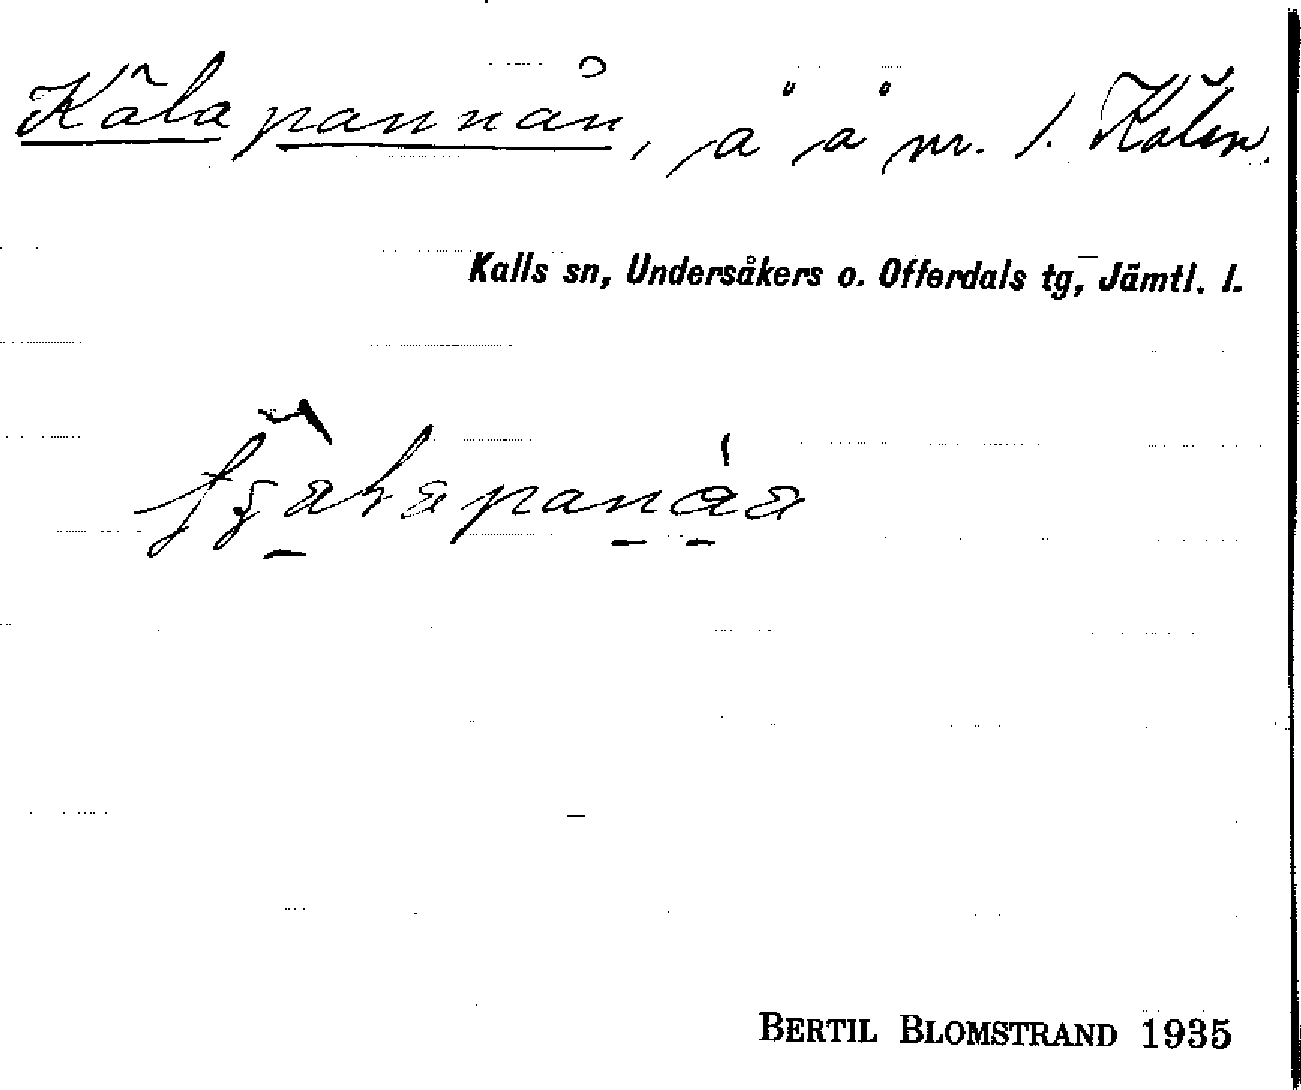 Kälapannån, å å nr. 1. Kölen.
Kalls sn, Undersåkers o. Offerdals tg, Jämtl. l.
BERTIL BLOMSTRAND 1935